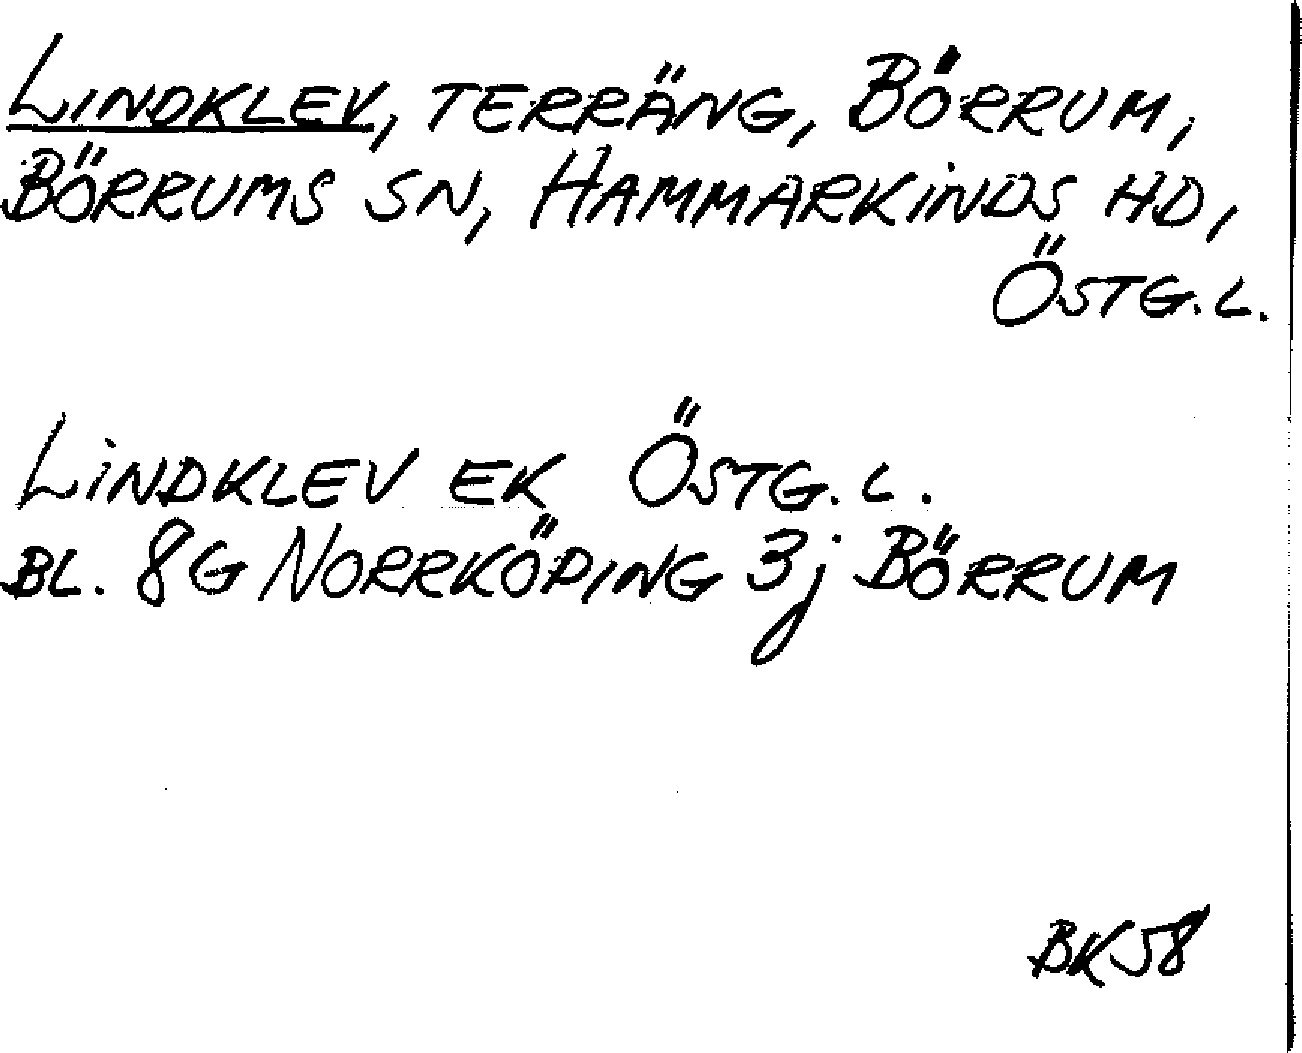 LINDKLEV, TERRÄNG, BÖRRUM,
BÖRRUMS SN, HAMMARKINDS HD,
ÖSTG.L.
LINDKLEV EK ÖSTG.L.
BL. 8G NORRKÖPING 3j BÖRRUM
BK58